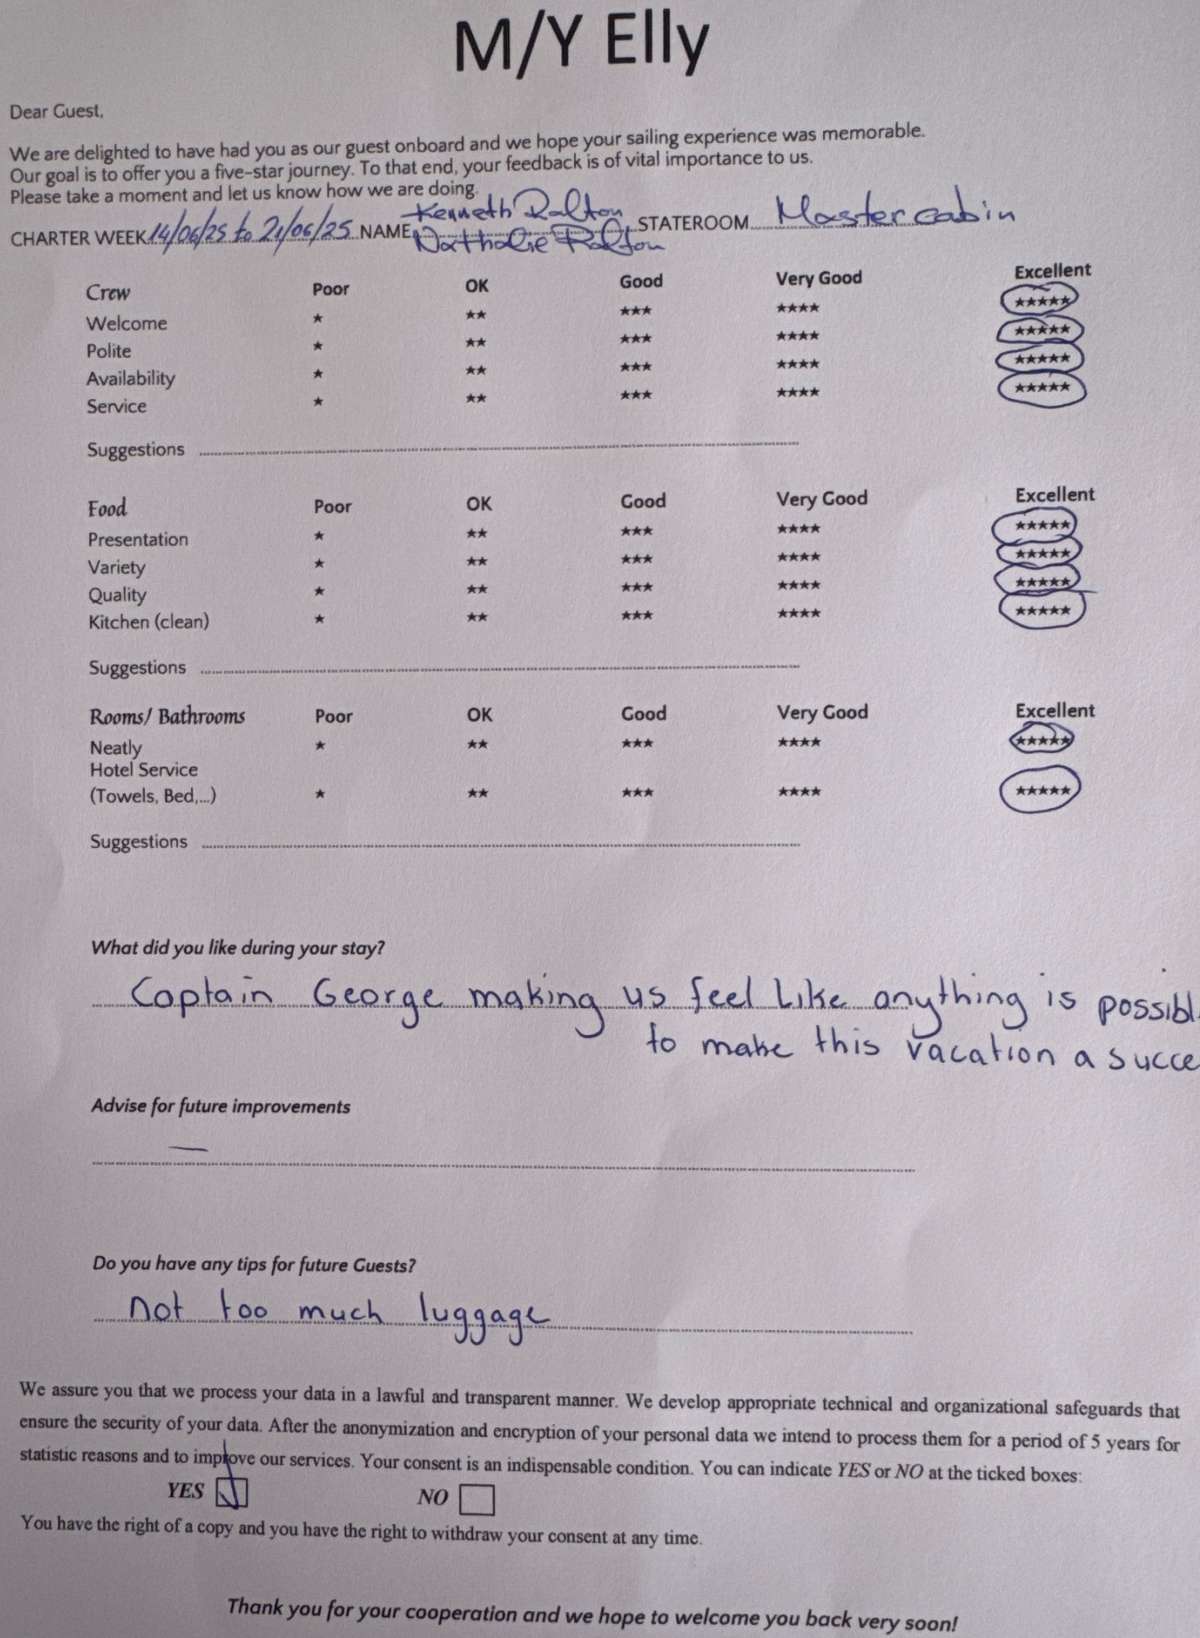 M/Y Elly
Dear Guest,
We are delighted to have had you as our guest onboard and we hope your sailing experience was memorable.
Our goal is to offer you a five-star journey. To that end, your feedback is of vital importance to us.
Please take a moment and let us know how we are doing.
Kenneth Ralton
CHARTER WEEK 14/06/25 to 21/06/25 NAME Nathalie Ralton STATEROOM Mastercabin
Crew Poor OK Good Very Good Excellent
Welcome ★ ★★ ★★★ ★★★★ ★★★★★
Polite ★ ★★ ★★★ ★★★★ ★★★★★
Availability ★ ★★ ★★★ ★★★★ ★★★★★
Service ★ ★★ ★★★ ★★★★ ★★★★★
Suggestions
Food Poor OK Good Very Good Excellent
Presentation ★ ★★ ★★★ ★★★★ ★★★★★
Variety ★ ★★ ★★★ ★★★★ ★★★★★
Quality ★ ★★ ★★★ ★★★★ ★★★★★
Kitchen (clean) ★ ★★ ★★★ ★★★★ ★★★★★
Suggestions
Rooms/ Bathrooms Poor OK Good Very Good Excellent
Neatly ★ ★★ ★★★ ★★★★ ★★★★★
Hotel Service
(Towels, Bed,...) ★ ★★ ★★★ ★★★★ ★★★★★
Suggestions
What did you like during your stay?
Captain George making us feel like anything is possibl
to make this vacation a succe
Advise for future improvements
—
Do you have any tips for future Guests?
not too much luggage
We assure you that we process your data in a lawful and transparent manner. We develop appropriate technical and organizational safeguards that
ensure the security of your data. After the anonymization and encryption of your personal data we intend to process them for a period of 5 years for
statistic reasons and to improve our services. Your consent is an indispensable condition. You can indicate YES or NO at the ticked boxes:
YES NO
You have the right of a copy and you have the right to withdraw your consent at any time.
Thank you for your cooperation and we hope to welcome you back very soon!